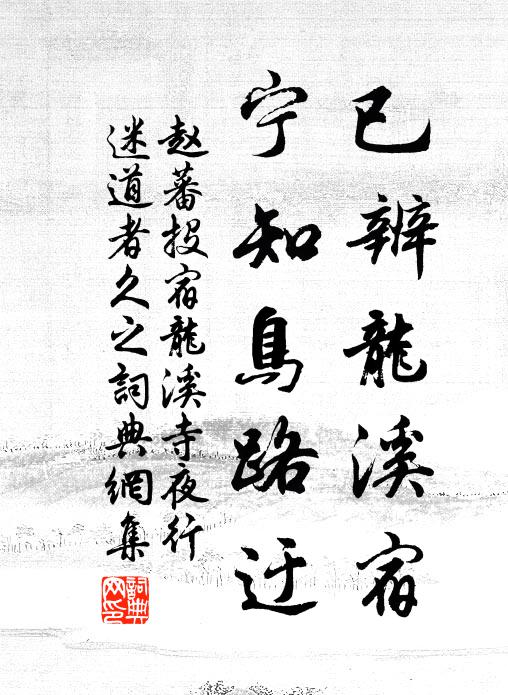 已辨龍溪宿
宁知鳥路迂
赵蕃投宿龍溪寺夜行
迷道者久之詞典網集
詞典网印